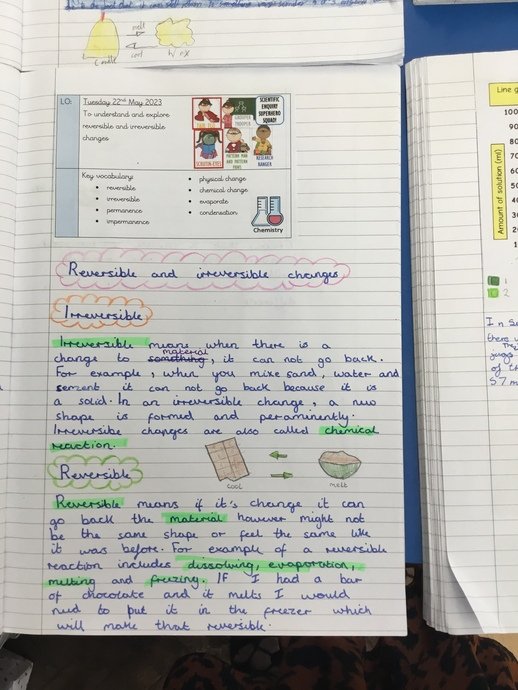 Candle
melt
cool
wax
LO:
Tuesday 22nd May 2023
To understand and explore
reversible and irreversible
changes
SCIENTIFIC
ENQUIRY
SUPERHERO
SQUAD!
FAIR TEST
GROUPER
TROOPER
SCRUTIN-EYES
PATTERN MAN
AND PATTERN
PAWS
RESEARCH
RANGER
Key vocabulary:
reversible
irreversible
permanence
impermanence
physical change
chemical change
evaporate
condensation
Chemistry
Reversible and irreversible changes
Irreversible
Irreversible means when there is a
material
change to something, it can not go back.
For example, when you mixe sand, water and
cement it can not go back because it is
a solid. In an irreversible change, a new
shape is formed and peraminently.
Irreversible changes are also called chemical
reaction.
Reversible
cool
melt
Reversible means if it's change it can
go back the material however might not
be the same shape or feel the same like
it was before. For example of a reversible
reaction includes dissolving, evaporation,
melting and frezing. IF I had a bar
of chocolate and it melts I would
need to put it in the freezer which
will make that reversible.
Line g
Amount of solution (ml)
100
90
80
70
60
50
40
30
20
1
2
In S
there w
The
jugs
of th
57 m